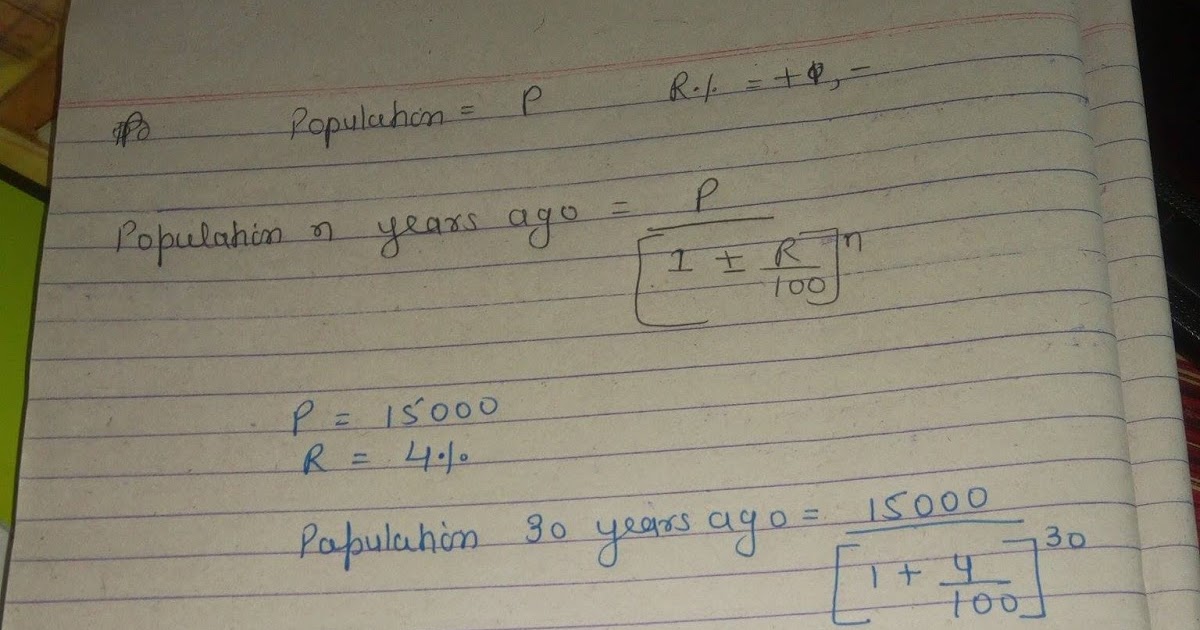 Population = P R.% = +, -
Population n years ago = P / [1 ± R/100]^n
P = 15000
R = 4%
Papulation 30 years ago = 15000 / [1 + 4/100]^30